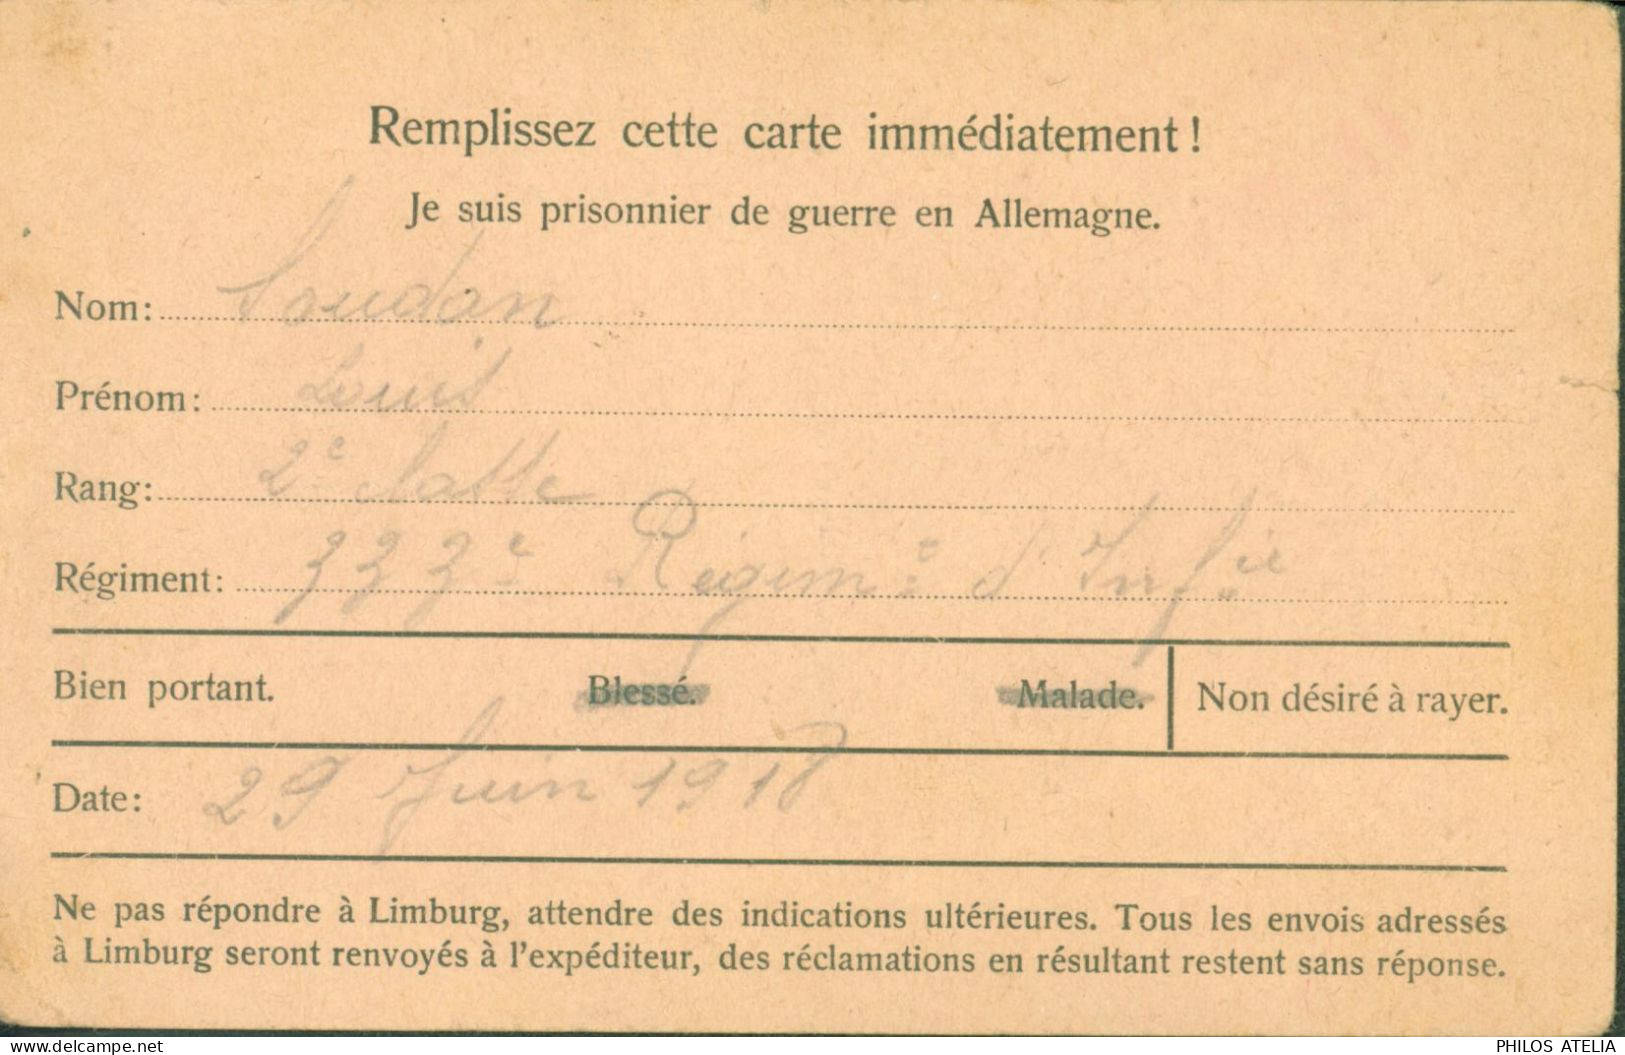 Remplissez cette carte immédiatement !
Je suis prisonnier de guerre en Allemagne.
Nom: Soudan
Prénom: Louis
Rang: 2e classe
Régiment: 333e Régimt d'Infie
Bien portant. Blessé. Malade. Non désiré à rayer.
Date: 29 Juin 1918
Ne pas répondre à Limburg, attendre des indications ultérieures. Tous les envois adressés
à Limburg seront renvoyés à l'expéditeur, des réclamations en résultant restent sans réponse.
www.delcampe.net
PHILOS ATELIA